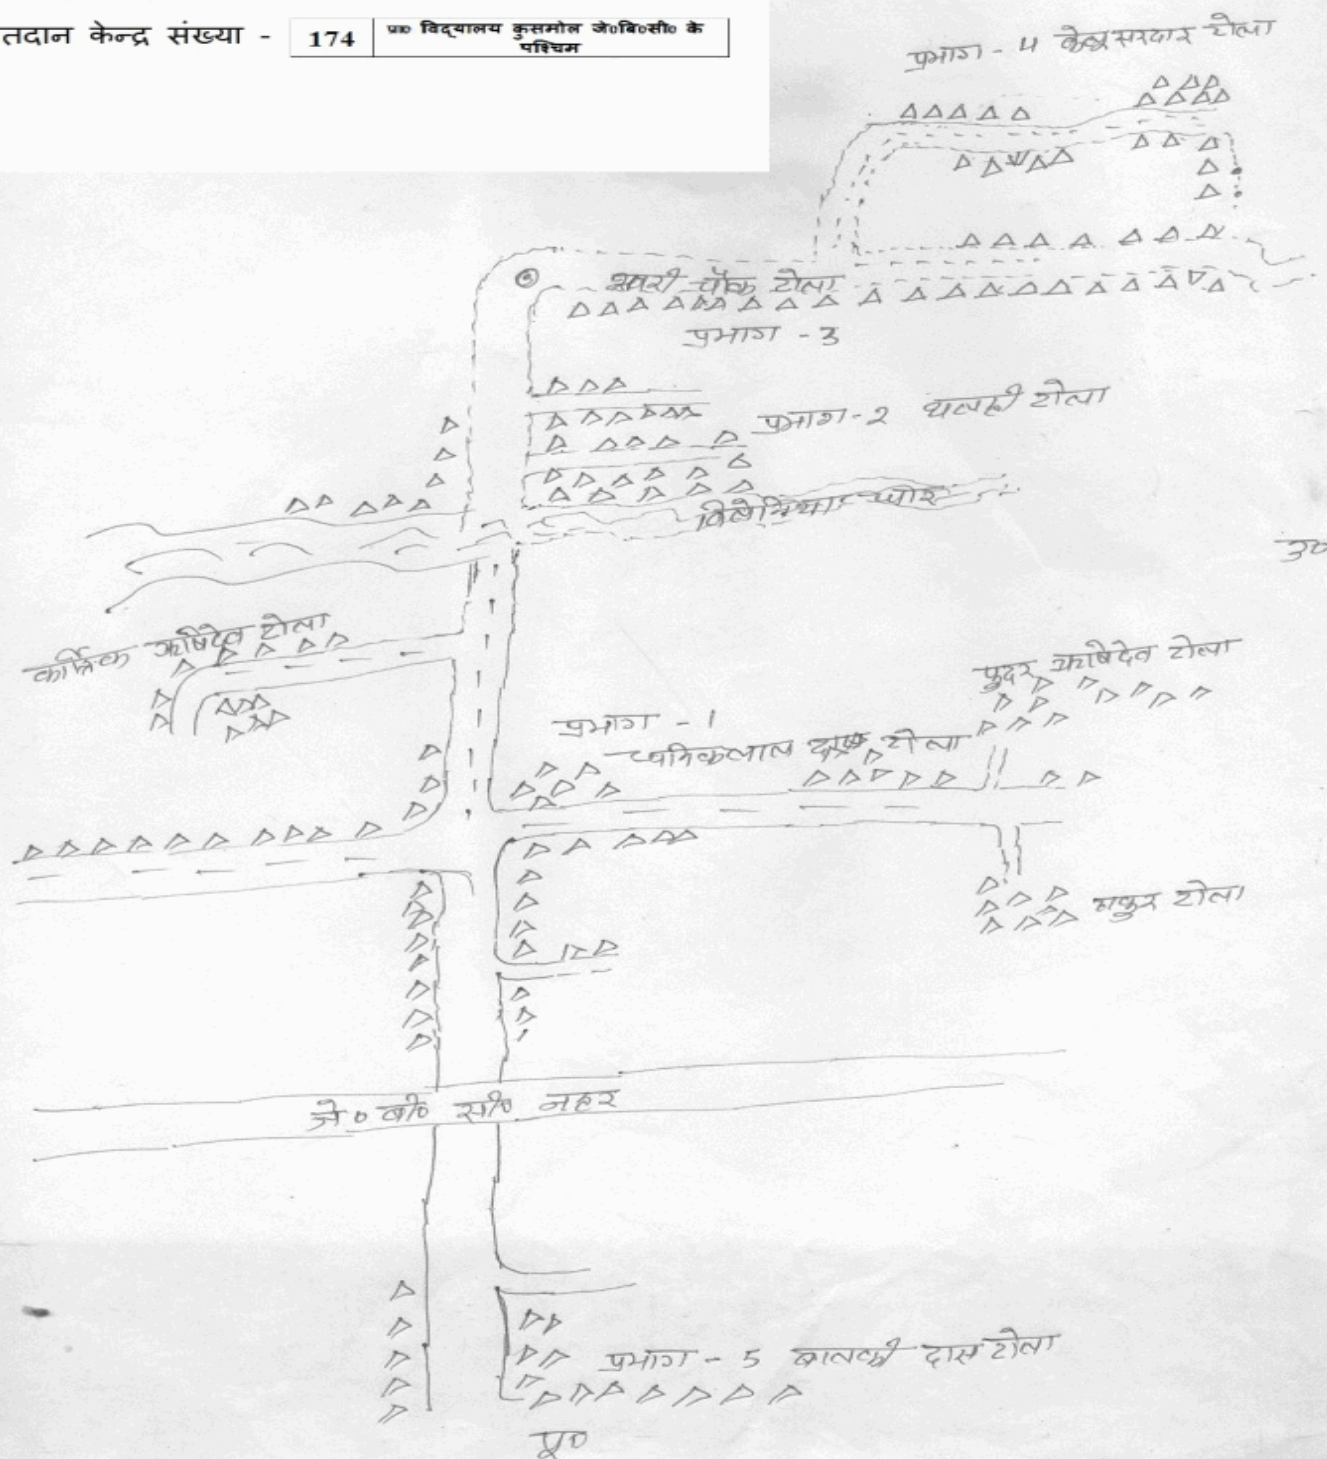 तदान केन्द्र संख्या - 174 प्रा० विद्यालय कुसमोल जे०बि०सी० के
पश्चिम
प्रभाग - 4 सरदार टोला
चौक टोला
प्रभाग - 3
प्रभाग - 2 टोला
धार
उ०
कार्तिक ऋषिदेव टोला
फुदर ऋषिदेव टोला
प्रभाग - 1
दास टोला
ठाकुर टोला
जे० बी० सी० नहर
प्रभाग - 5 बालकी दास टोला
पू०